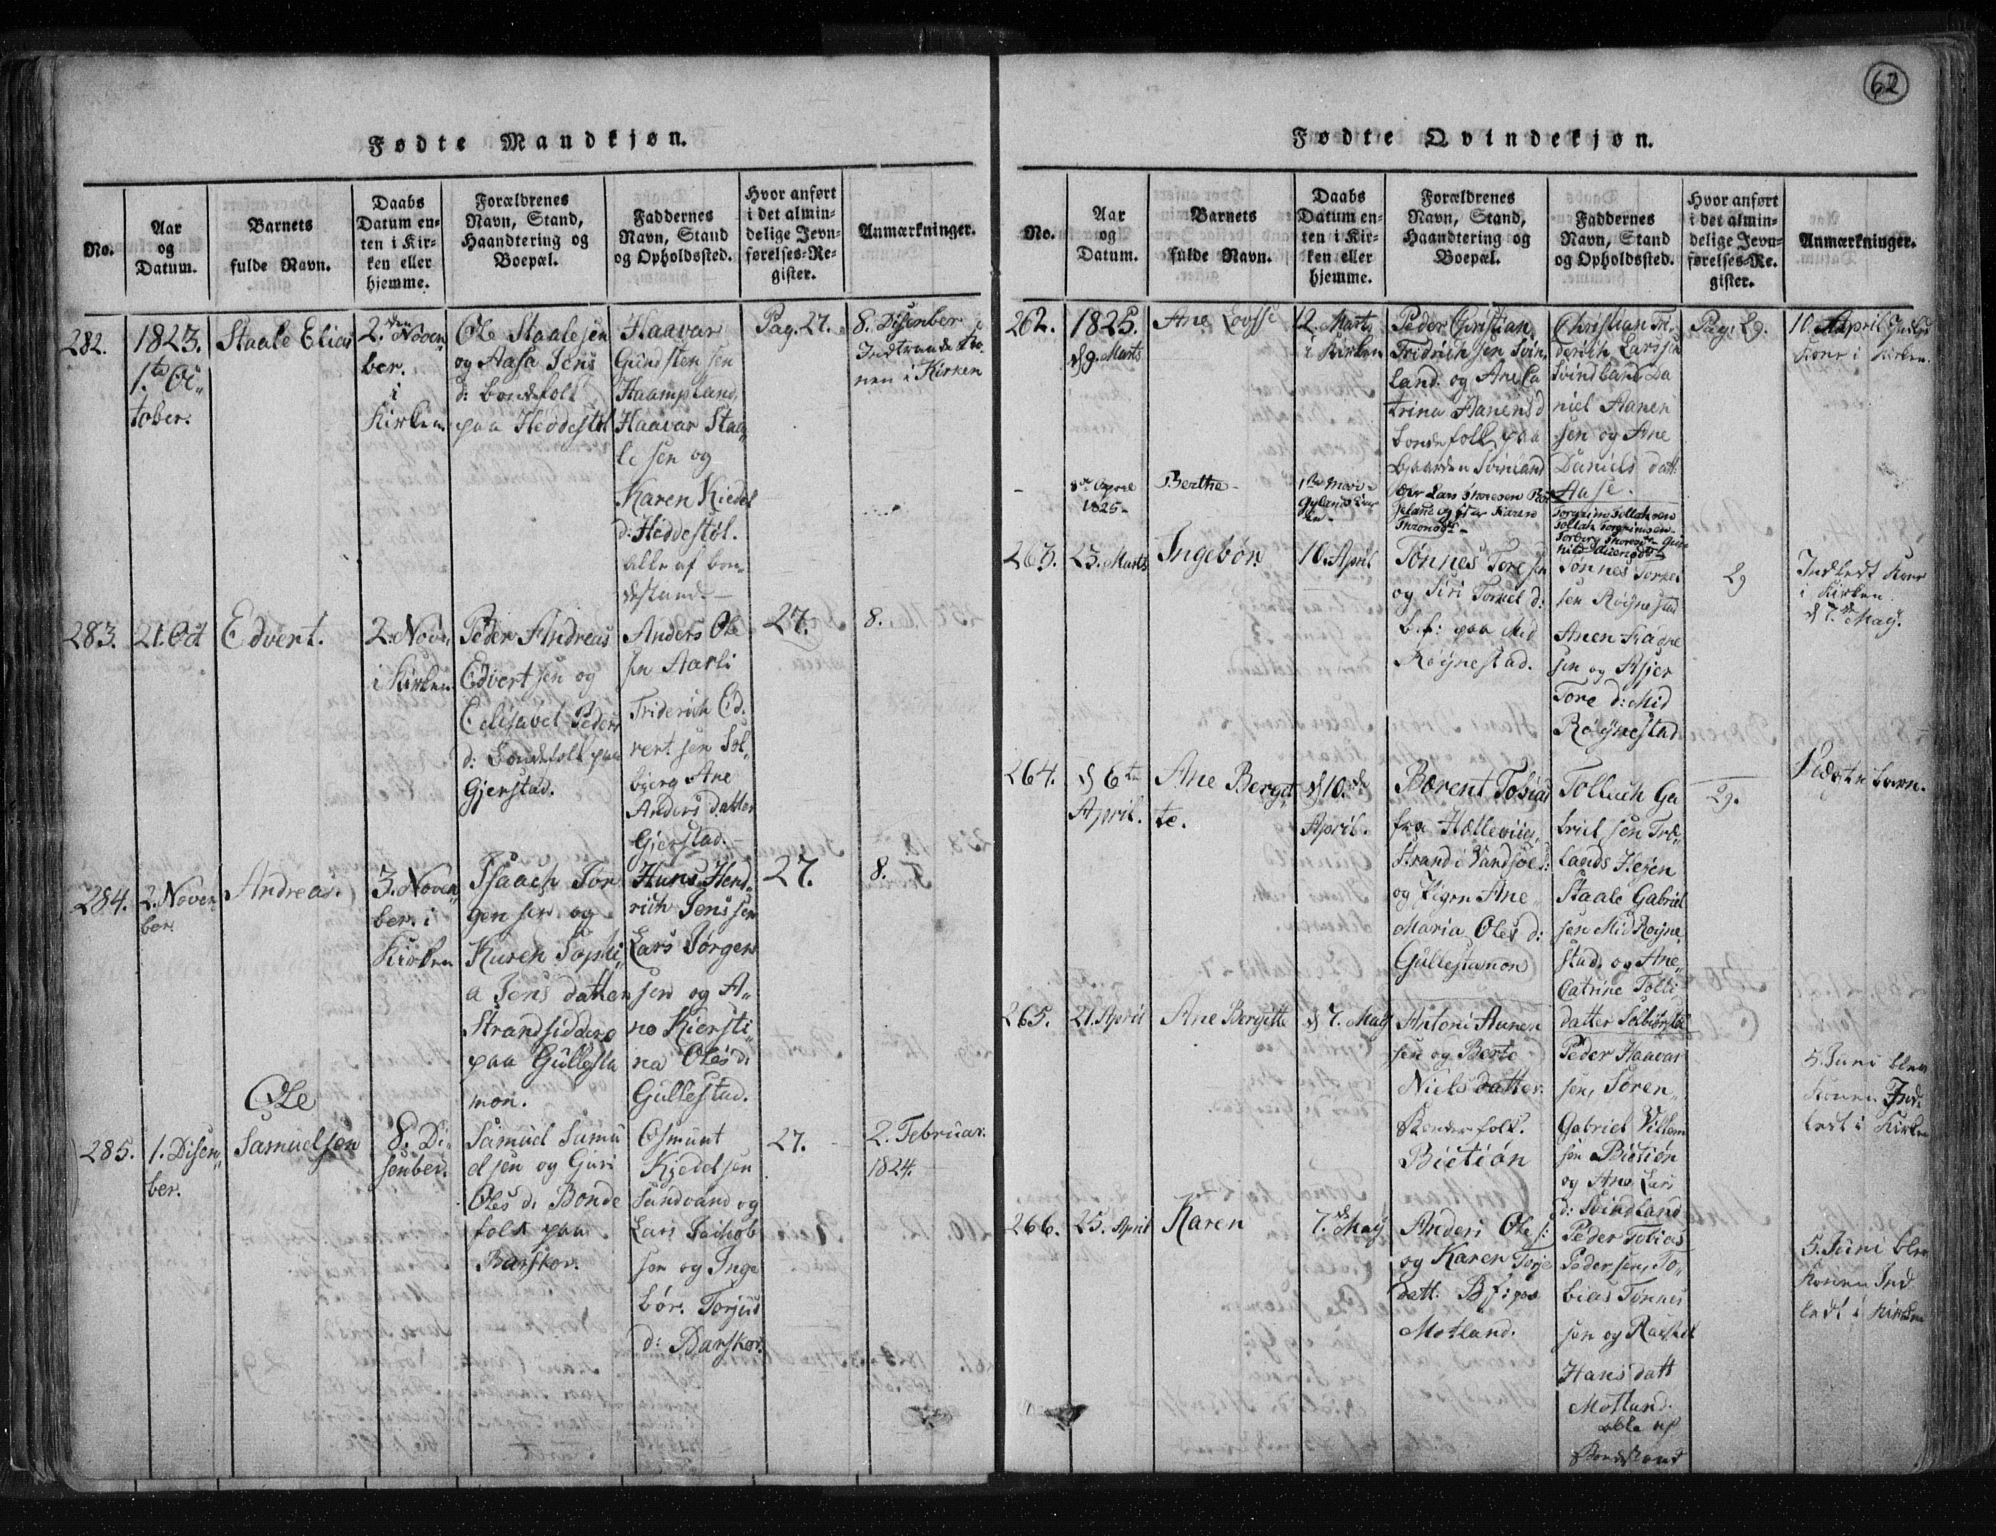 62
Fødte Mandkjøn.
No.
Aar
og
Datum.
Barnets
fulde Navn.
Daabs
Datum en-
ten i Kir-
ken eller
hjemme.
Forældrenes
Navn, Stand,
Haandtering og
Boepæl.
Faddernes
Navn, Stand
og Opholdssted.
Hvor anført
i det almin-
delige Jevn-
førelses-Re-
gister.
Anmærkninger.
282.
1823.
1.te Oc-
tober.
Staale Elias
2.den Novem
ber.
i
Kirken
Ole Staalesen
og Aasa Jens
d: bondefolk
paa Heddestøl
Haavar
Gunsten sen
Haampland,
Haavar Staa-
le sen og
Karen Kiedel
d: Heddestøl.
alle af bon-
destand.
Pag. 27.
8. Disenber
Indtraade Ko-
nen i Kirken
283.
21. Oct
Edvert.
2. Nove
i Kirken
Peder Andreas
Edvert sen og
Celisavet Peders
d: bondefolk paa
Gjerstad.
Anders Ole
sen Aarli
Friderich Ed-
vert sen Sol-
bjerg Ane
Anders datter
Gjerstad.
27.
8.
284.
2. Novem
ber.
Andreas.
3. Noven
ber. i
Kirken
Isaach Jør
gen sen og
Karen Sophi-
a Jens datter
Strandsiddere
paa Gullesta
mon.
Hans Hend-
rich Jens sen
Lars Jørgen
sen og A-
ne Kiersti-
na Oles d:
Gullestad.
27.
8.
285.
1. Disen-
ber.
Ole
Samuelsen
8. Di-
senber.
Samuel Samu
elsen og Guri
Oles d: Bonde
folk paa
Barskor.
Osmunt
Kjedel sen
Sundvand og
Lars Jachob
sen og Inge
bør. Torjus
d: Barskor.
27.
2. Februar.
1824.
Fødte Qvindekjøn.
No.
Aar
og
Datum.
Barnets
fulde Navn.
Daabs
Datum en-
ten i Kir-
ken eller
hjemme.
Forældrenes
Navn, Stand,
Haandtering og
Boepæl.
Faddernes
Navn, Stand
og Opholdssted.
Hvor anført
i det almin-
delige Jevn-
førelses-Re-
gister.
Anmærkninger.
262.
1825.
d 9. Marts
Ane Lovise
12. Marts
i Kirken
Peder Christian
Fridrich sen Svin
land. og Ane Ca
trina Aanens d
bondefolk paa
Gaarden Svinland
Christian Fri-
derich Lars sen
Svindland, Da
niel Aanen
sen og Ane
Daniels datt.
Aase.
Pag. 29.
10. April Indled
Kone i Kirken.
8de April
1825
Berthe
1ste Mai
Gylands
Lars Thoresen
og Karen
Thronsd.
Torgrim Tollaksen
Tollak Torgrimsen
Torborg Thoresd.
263.
23. Marts
Ingebør.
10. April
Tønnes Tore sen
og Siri Torkel d:
b.f: paa Mid
Røynestad.
Tønnes Torkel
sen Røynestad
Anen Aagne
sen og Asjer
Tore d: Mid
Røynestad
29
Indledt Kone
i Kirken
d 7. May.
264.
d 6te
April.
Ane Bergit
te.
d 10de
April.
Børent Tobias
fra Hællevig,
Strand i Vandsøe S:
og Pigen Ane
Maria Oles d:
Gullestamon
Tollach Ga
briel sen Træ-
lands Hejen
Staale Gabriel
sen Mid Røyne
stad, og Ane
Catrine Tolli
datter Solbiørstøl
29.
Uægte barn.
265.
21. April
Ane Bergitte
d 7. May
Antoni Aanen
sen og Berte
Niels datter.
Bonder folk.
Bietiøn
Peder Haavar
sen, Søren
Gabriel Villom
sen Bietiøn
og Ane Lars
d: Svindland
5. Juni blev
Konen Ind-
ledt i Kirken
266.
25. April
Karen
7. May
Anders Ole s:
og Karen Torje
datt. B f: paa
Motland.
Peder Tobias
Peder sen, To-
bias Tønnes
sen og Rachel
Hans datt
Motland.
alle af
Bondestand
5. Juni blev
Konen Ind
ledt i Kirken